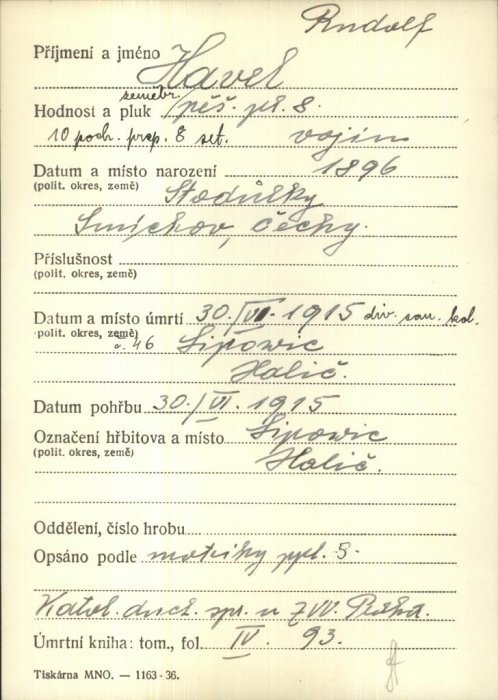 Rudolf
Příjmení a jméno Havel
zeměbr.
Hodnost a pluk pěš. pl. 8.
10 poch. prap. 8 set. vojín
Datum a místo narození 1896
(polit. okres, země) Stodůlky
Smíchov, Čechy.
Příslušnost
(polit. okres, země)
Datum a místo úmrtí 30./VI. 1915 div. san. kol.
(polit. okres, země) č. 46 Lipowic
Halič.
Datum pohřbu 30./VI. 1915
Označení hřbitova a místo Lipowic
(polit. okres, země) Halič.
Oddělení, číslo hrobu
Opsáno podle matriky ppl. 5.
Katol. duch. spr. u ZVV. Praha.
Úmrtní kniha: tom., fol. IV. 93.
Tiskárna MNO. — 1163-36.